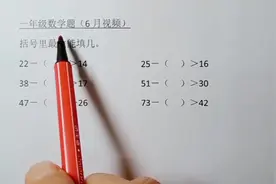 一年级数学题（6月视频）
括号里最 能填几。
22－（ ）＞14 25－（ ）＞16
38－（ ＞17 51－（ ）＞30
47－（ ＞26 73－（ ）＞42